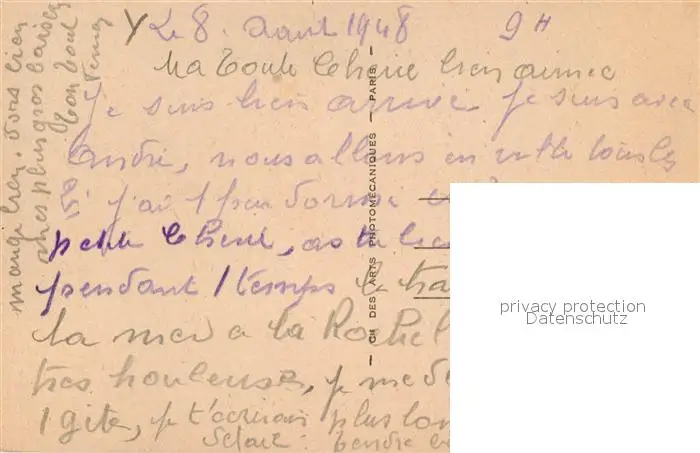 Le 8. Aout 1948 9H
Ma toute Cherie bien aimee
Je suis bien arrivé. je suis avec
André, nous allons en ville tous les
2. j'ai 1 peu dormi
petite Cherie, as tu
pendant 1 temps le
la mer a la Rochel
tres houleuse, je me
1 gite, je t'écrirai plus lon
Tendre
mange bien. dors bien
mes plus gros baisers
ton tout
CH DES ARTS PHOTOMÉCANIQUES — PARIS.
privacy protection
Datenschutz